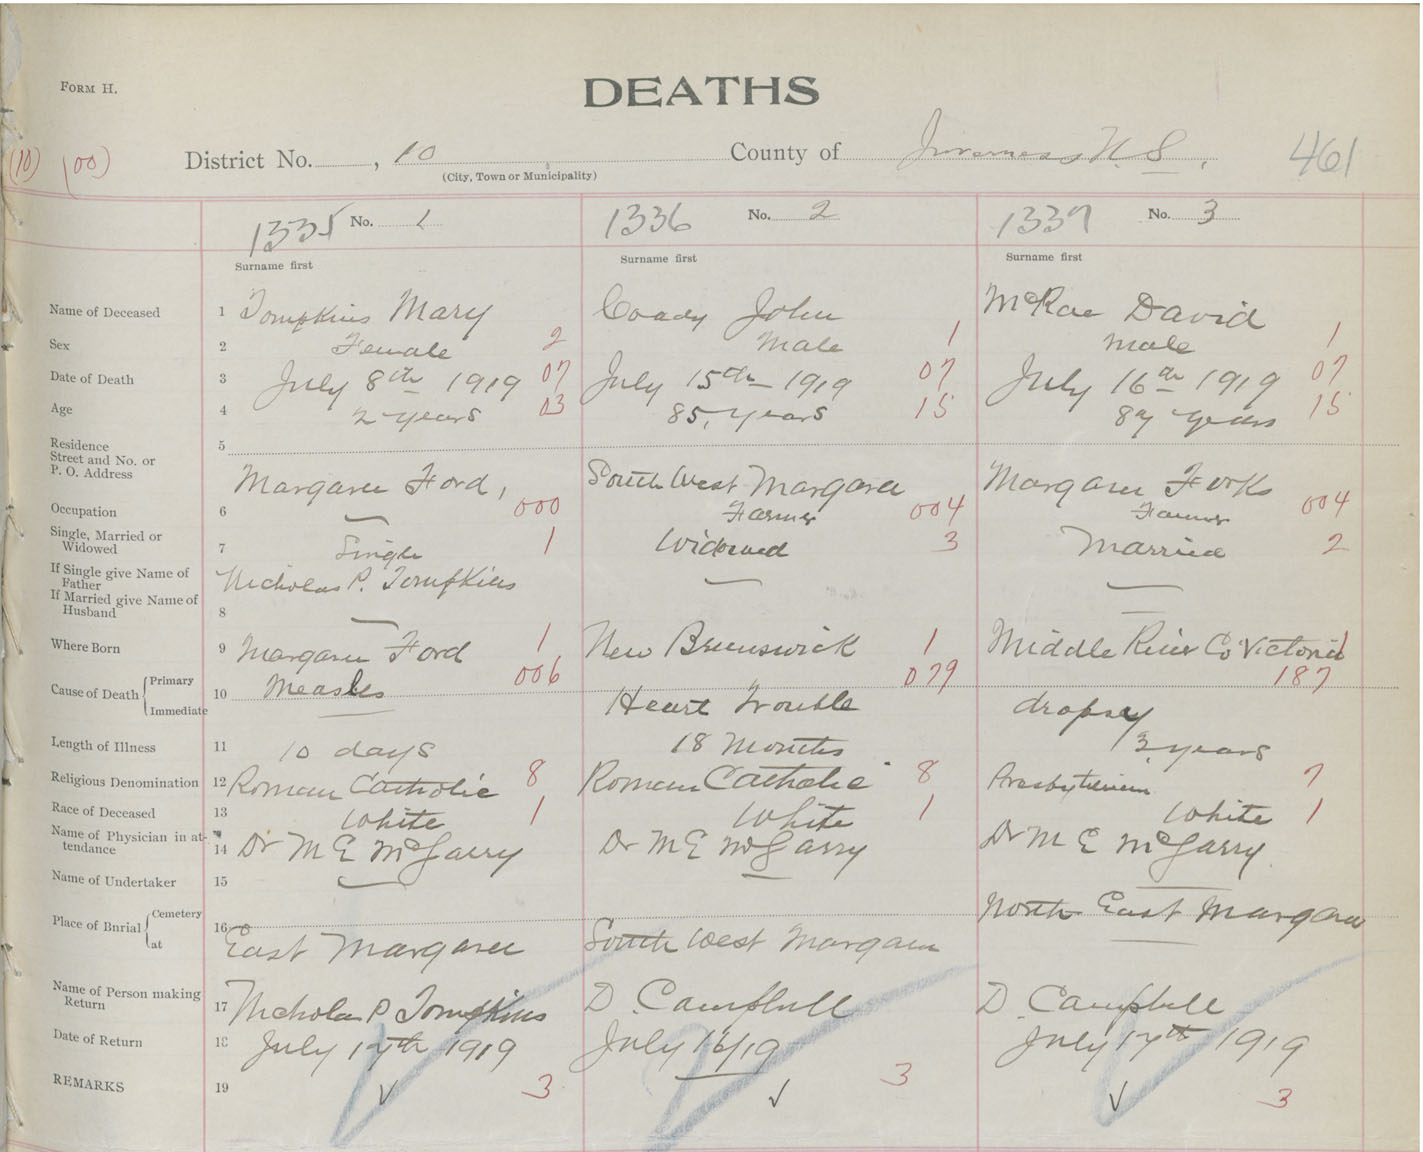 FORM H.
DEATHS
(10) (00) District No. , 10 County of Inverness N.S. 461
(City, Town or Municipality)
1335 No. 1 1336 No. 2 1337 No. 3
Surname first Surname first Surname first
Name of Deceased 1 Tompkins Mary Coady John McRae David
Sex 2 Female 2 Male 1 Male 1
Date of Death 3 July 8th 1919 07 July 15th 1919 07 July 16th 1919 07
Age 4 2 years 03 85, years 15 87 years 15
Residence
Street and No. or
P. O. Address 5 Margaree Ford, South West Margaree Margaree Forks
Occupation 6 000 Farmer 004 Farmer 004
Single, Married or
Widowed 7 Single 1 Widowed 3 Married 2
If Single give Name of
Father Nicholas P. Tompkins
If Married give Name of
Husband 8
Where Born 9 Margaree Ford 1 New Brunswick 1 Middle River Co Victoria 1
Cause of Death Primary 10 Measles 006 079 187
Immediate Heart Trouble dropsy
Length of Illness 11 10 days 18 Months 3 years
Religious Denomination 12 Roman Catholic 8 Roman Catholic 8 Presbyterian 7
Race of Deceased 13 White 1 White 1 White 1
Name of Physician in at-
tendance 14 Dr M E McGarry Dr M E McGarry Dr M E McGarry
Name of Undertaker 15
Place of Burial Cemetery 16 North East Margaree
at East Margaree South West Margaree
Name of Person making
Return 17 Nicholas P Tompkins D. Campbell D. Campbell
Date of Return 18 July 17th 1919 July 16/19 July 17th 1919
REMARKS 19 3 3 3